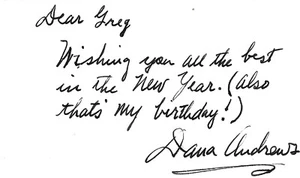 Dear Greg
Wishing you all the best
in the New Year. (also
that's my birthday!)
Dana Andrews